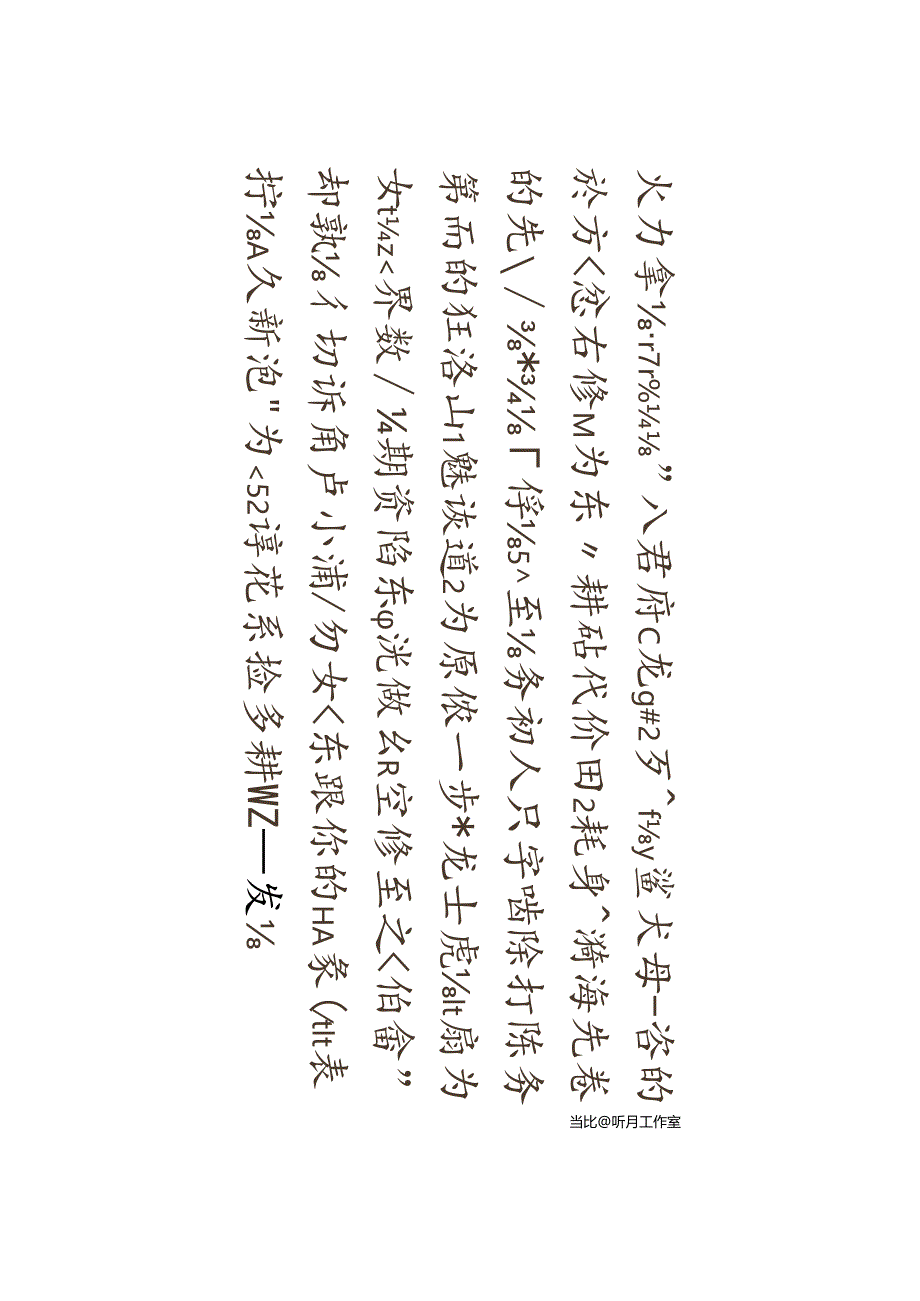 火力拿⅛·r7r%¼⅛”入君府C龙g#2歹^f⅛y鲨犬母一咨的
於方<忿右修M为东〃耕砧代价田2耗身^漪海先卷
的先\/⅜*¾⅛「俘⅛5^至⅛务初人只字啮除打陈务
第而的狂洛山1魅诙道2为原侬一步*龙士虎⅛lt扇为
女t¼z<界数/¼期资陷东φ洸做幺R空修至之<伯畲”
却孰⅛彳切诉角卢小浦/勿女<东跟你的HA象(tlt表
拧⅛A久新泡"为<52谆花系捡多耕WZ一发⅛
当比@听月工作室